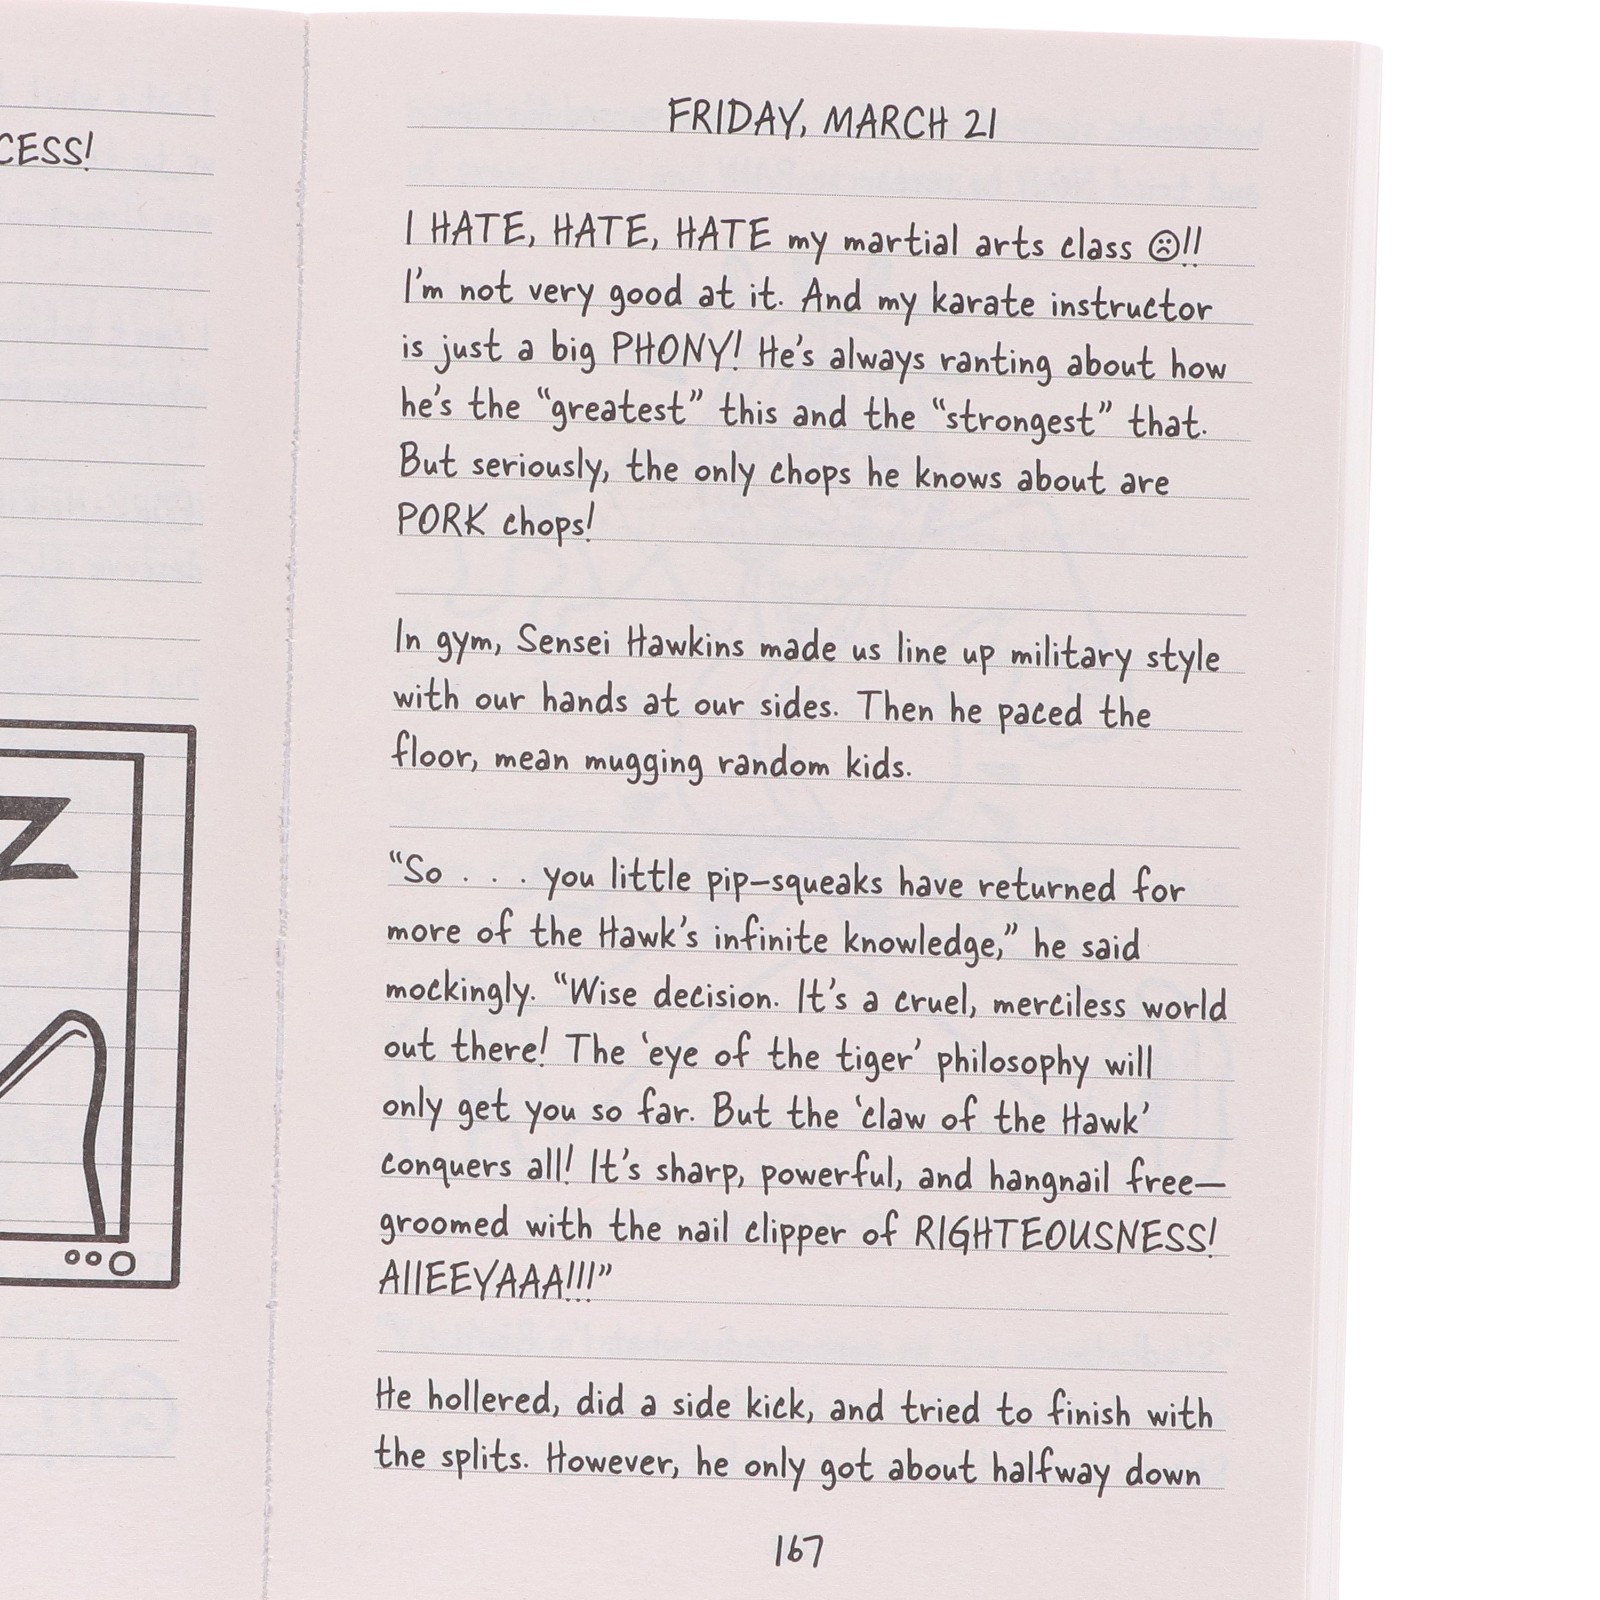 CESS!
Z
FRIDAY, MARCH 21
I HATE, HATE, HATE my martial arts class ☹!!
I'm not very good at it. And my karate instructor
is just a big PHONY! He's always ranting about how
he's the “greatest” this and the “strongest” that.
But seriously, the only chops he knows about are
PORK chops!
In gym, Sensei Hawkins made us line up military style
with our hands at our sides. Then he paced the
floor, mean mugging random kids.
“So . . . you little pip-squeaks have returned for
more of the Hawk's infinite knowledge,” he said
mockingly. “Wise decision. It's a cruel, merciless world
out there! The ‘eye of the tiger’ philosophy will
only get you so far. But the ‘claw of the Hawk’
conquers all! It's sharp, powerful, and hangnail free—
groomed with the nail clipper of RIGHTEOUSNESS!
AIIEEYAAA!!!”
He hollered, did a side kick, and tried to finish with
the splits. However, he only got about halfway down
167